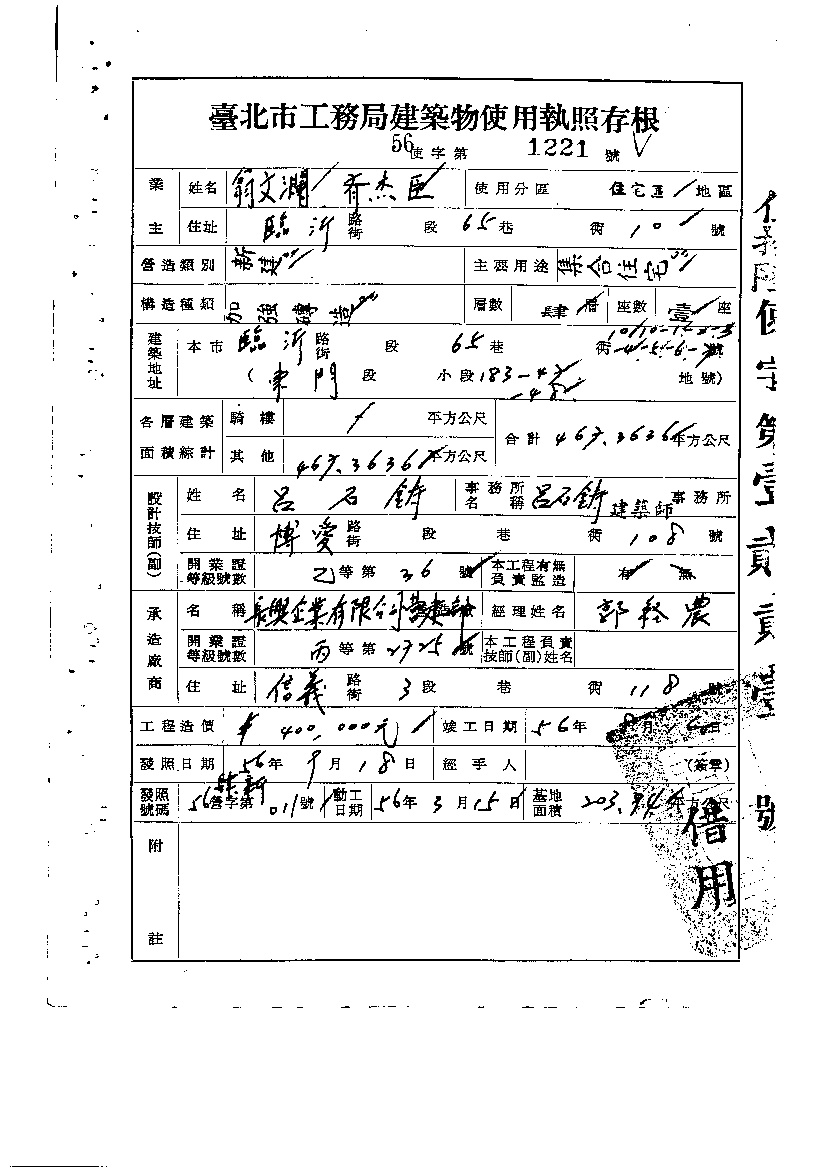 臺北市工務局建築物使用執照存根
56使字第 1221 號
業主 姓名 翁文瀾 使用分區 住宅區 地區
住址 臨沂 路街 段 65巷 衖 10 號
營造類別 新建 主要用途 集合住宅
構造種類 加強磚造 層數 肆層 座數 壹座
建築地址 本市 臨沂 路街 段 65巷 衖 號
(東門 段 小段 183-47 -48 地號)
各層建築面積綜計 騎樓 / 平方公尺 合計 平方公尺
其他 平方公尺
設計技師(副) 姓名 呂石鑄 事務所名稱 呂石鑄建築師 事務所
住址 博愛 路街 段 巷 衖 108 號
開業證等級號數 乙等第 36 號 本工程有無負責監造 有 無
承造廠商 名稱 長興企業有限公司營造 經理姓名 郭 農
開業證等級號數 丙等第 2725 號 本工程負責技師(副)姓名
住址 信義 路街 3段 巷 衖 118 號
工程造價 ¥400,000元 竣工日期 56年 月 日
發照日期 56年 9月 18日 經手人 (簽章)
發照號碼 56營字第 011號 動工日期 56年 3月 15日 基地面積 平方公尺
附註
使字第壹貳貳壹號
借用